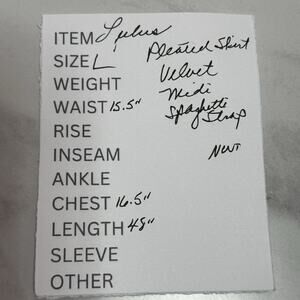 ITEM Lulus
SIZE L
WEIGHT
WAIST 15.5"
RISE
INSEAM
ANKLE
CHEST 16.5"
LENGTH 48"
SLEEVE
OTHER
Pleated Skirt
Velvet
Midi
Spaghetti
Strap
NWT